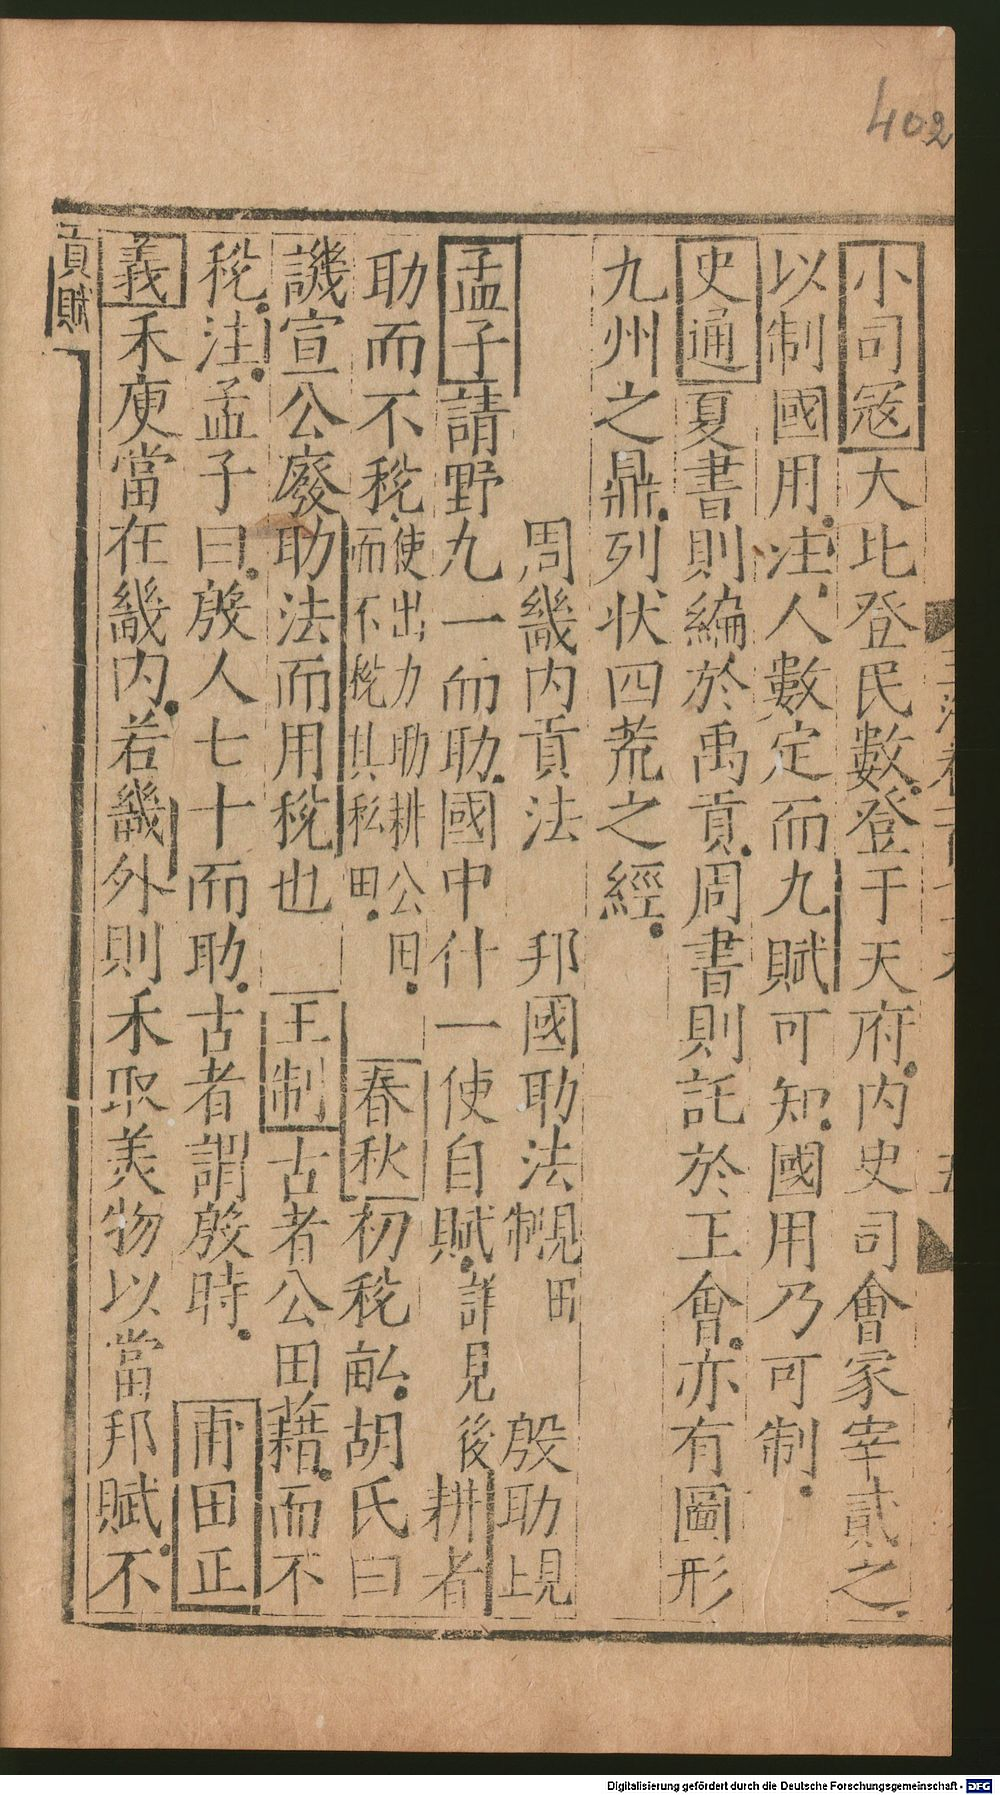 402
小司宼大比登民數登于天府内史司會冢宰貳之
以制國用注人數定而九賦可知國用乃可制
史通夏書則編於禹貢周書則託於王會亦有圖形
九州之鼎列状四荒之經
周畿内貢法 邦國助法見田制 殷助見上
孟子請野九一而助國中什一使自賦詳見後 耕者
助而不稅使出力助耕公田而不稅其私田 春秋初稅畝胡氏曰
譏宣公廢助法而用稅也 王制古者公田藉而不
稅注孟子曰殷人七十而助古者謂殷時 甫田正
義禾庾當在畿内若畿外則禾取美物以當邦賦不
貢賦
Digitalisierung gefördert durch die Deutsche Forschungsgemeinschaft - DFG